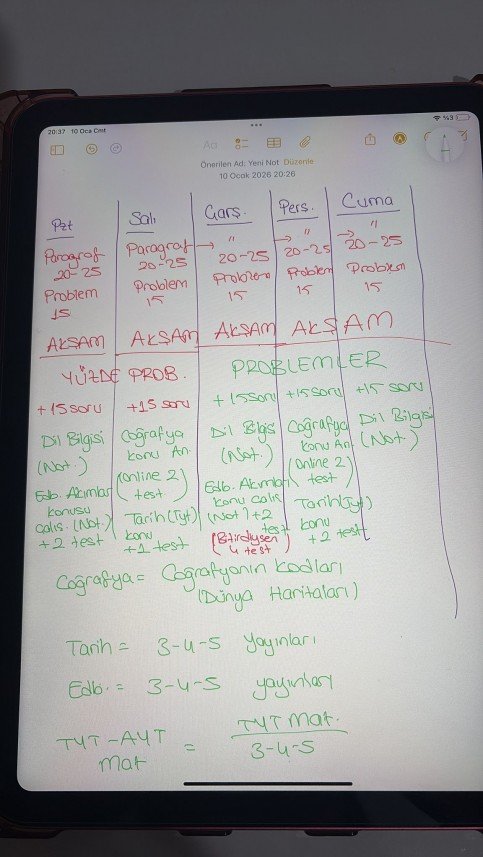 20:37 10 Oca Cmt
%3
Aa
Önerilen Ad: Yeni Not Düzenle
10 Ocak 2026 20:26
Pzt Salı Çarş. Pers. Cuma
Paragraf Paragraf → " → " → "
20-25 20-25 20-25 20-25 20-25
Problem Problem Problem Problem Problem
15 15 15 15 15
AKŞAM AKŞAM AKŞAM AKŞAM
YÜZDE PROB. PROBLEMLER
+15 soru +15 soru +15 soru +15 soru +15 soru
Dil Bilgisi
(Not.)
Edb. Akımlar
konusu
calıs. (Not)
+2 test
Coğrafya
konu An.
(online 2)
test
Tarih (Tyt)
konu
+1 test
Dil Bilgis
(Not.)
Edb. Akımları
konu calıs
(Not) +2
test
(Bitirdiysen
4 test)
Coğrafya
konu An.
(online 2)
test
Tarih (Tyt)
konu
+2 test
Dil Bilgisi
(Not.)
Coğrafya = Coğrafyanın Kodları
(Dünya Haritaları)
Tarih = 3-4-5 Yayınları
Edb. = 3-4-5 yayınları
TYT-AYT
Mat
=
TYT Mat.
3-4-5